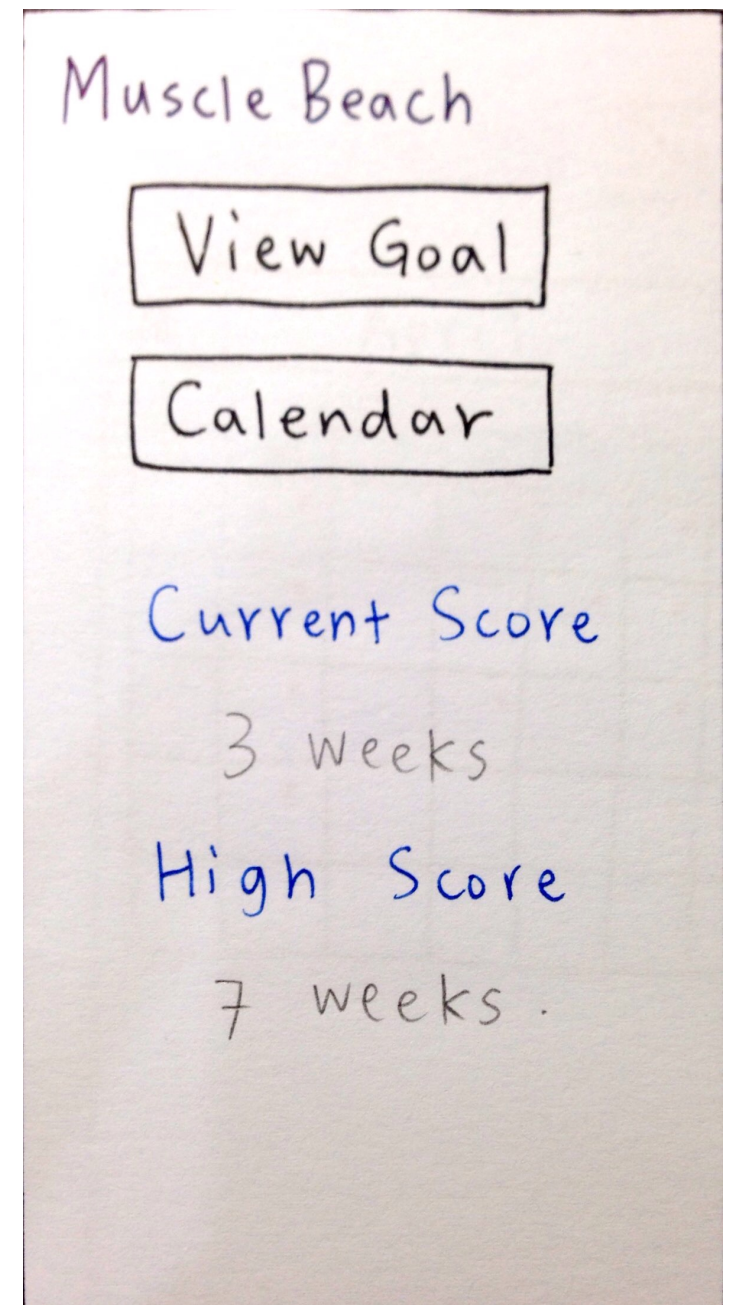 Muscle Beach
View Goal
Calendar
Current Score
3 weeks
High Score
7 weeks.